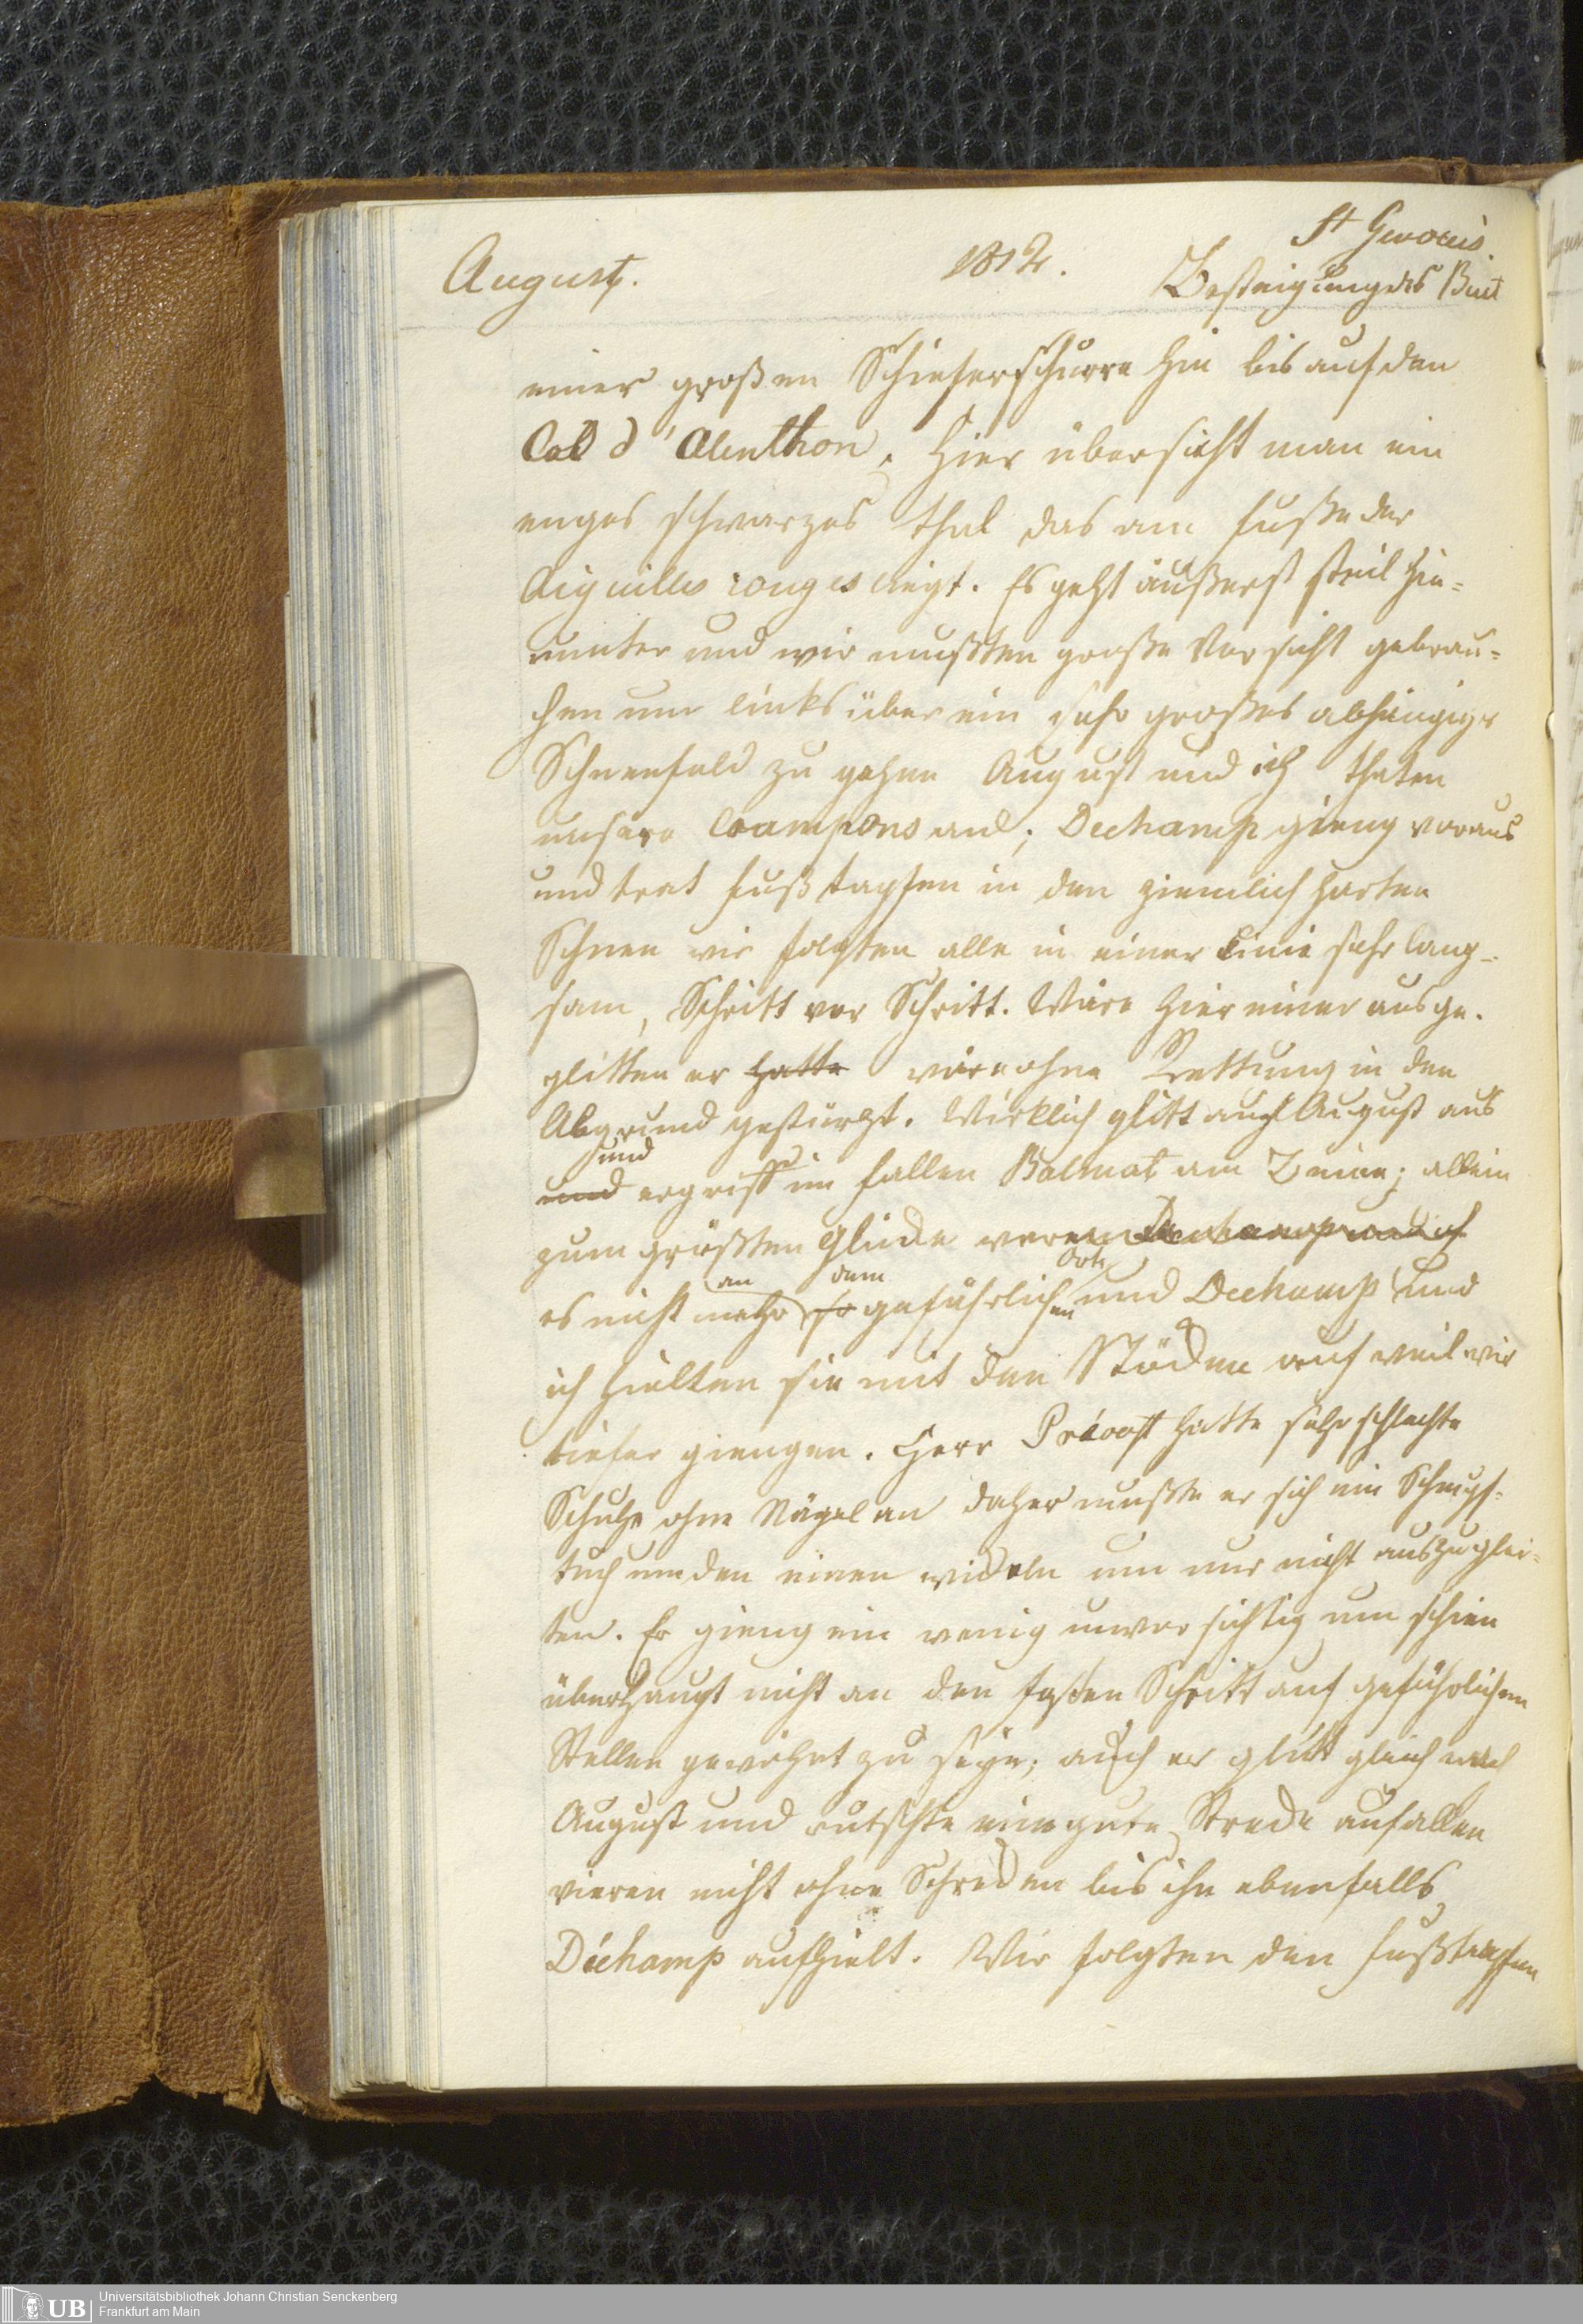 August. 1812. St Gervais.
Besteigung des Buet
einer großen Schieferschurre hin bis auf den
Col d'Alenthon. Hier übersieht man ein
enges schwarzes Thal das am Fuße der
Aiguilles rouges liegt. Es geht äußerst steil hin=
unter und wir mußten große Vorsicht gebrau=
chen um links über ein sehr großes abhängiges
Schneefeld zu gehen August und ich thaten
unsere Crampons an; Dechamp gieng voraus
und trat Fußtapfen in den ziemlich harten
Schnee wir folgten alle in einer Linie sehr lang=
sam, Schritt vor Schritt. Wäre hier einer ausge=
glitten er hatte wäre ohne Rettung in den
Abgrund gestürzt. Wirklich glitt auch August aus
und
und ergriff im Fallen Balmat am Beine; allein
zum größten Glücke war Dechamp und ich
an dem Ort
es nicht mehr so gefährlichen und Dechamp und
ich hielten sie mit den Stöcken auf weil wir
tiefer giengen. Herr Prévost hatte sehr schlechte
Schuhe ohne Nägel an daher mußte er sich ein Schnupf=
tuch um den einen wickeln um nur nicht auszuglei=
ten. Er gieng ein wenig unvorsichtig um schien
überhaupt nicht an den festen Schritt auf gefährlichen
Stellen gewöhnt zu seyn; auch er glitt gleich nach
August und rutschte eine gute Strecke auf allen
vieren nicht ohne Schrecken bis ihn ebenfalls
Déchamp aufhielt. Wir folgten den Fußtapfen
UB Universitätsbibliothek Johann Christian Senckenberg
Frankfurt am Main